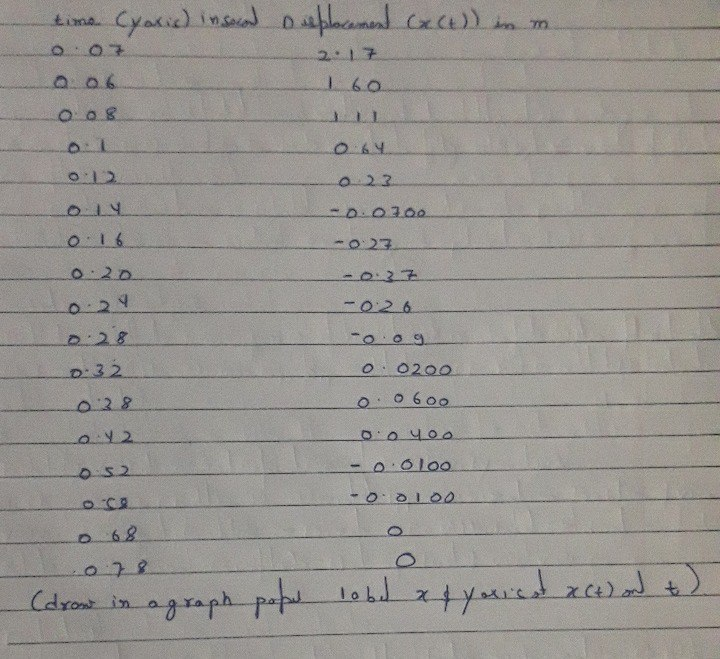 time (yaxis) in second Displacement (x(t)) in m
0.07 2.17
0.06 1.60
0.08 1.11
0.1 0.64
0.12 0.23
0.14 -0.0700
0.16 -0.27
0.20 -0.37
0.24 -0.26
0.28 -0.09
0.32 0.0200
0.38 0.0600
0.42 0.0400
0.52 -0.0100
0.58 -0.0100
0.68 0
0.78 0
(draw in a graph paper label x & yaxis at x(t) and t)